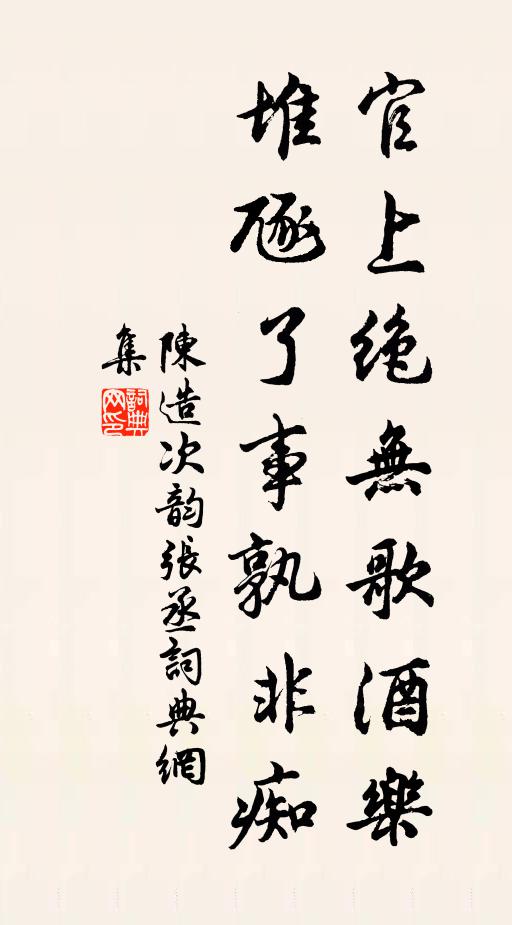 官上絶無歌酒樂
堆豗了事孰非痴
陳造次韵張丞詞典網
集
詞典網印